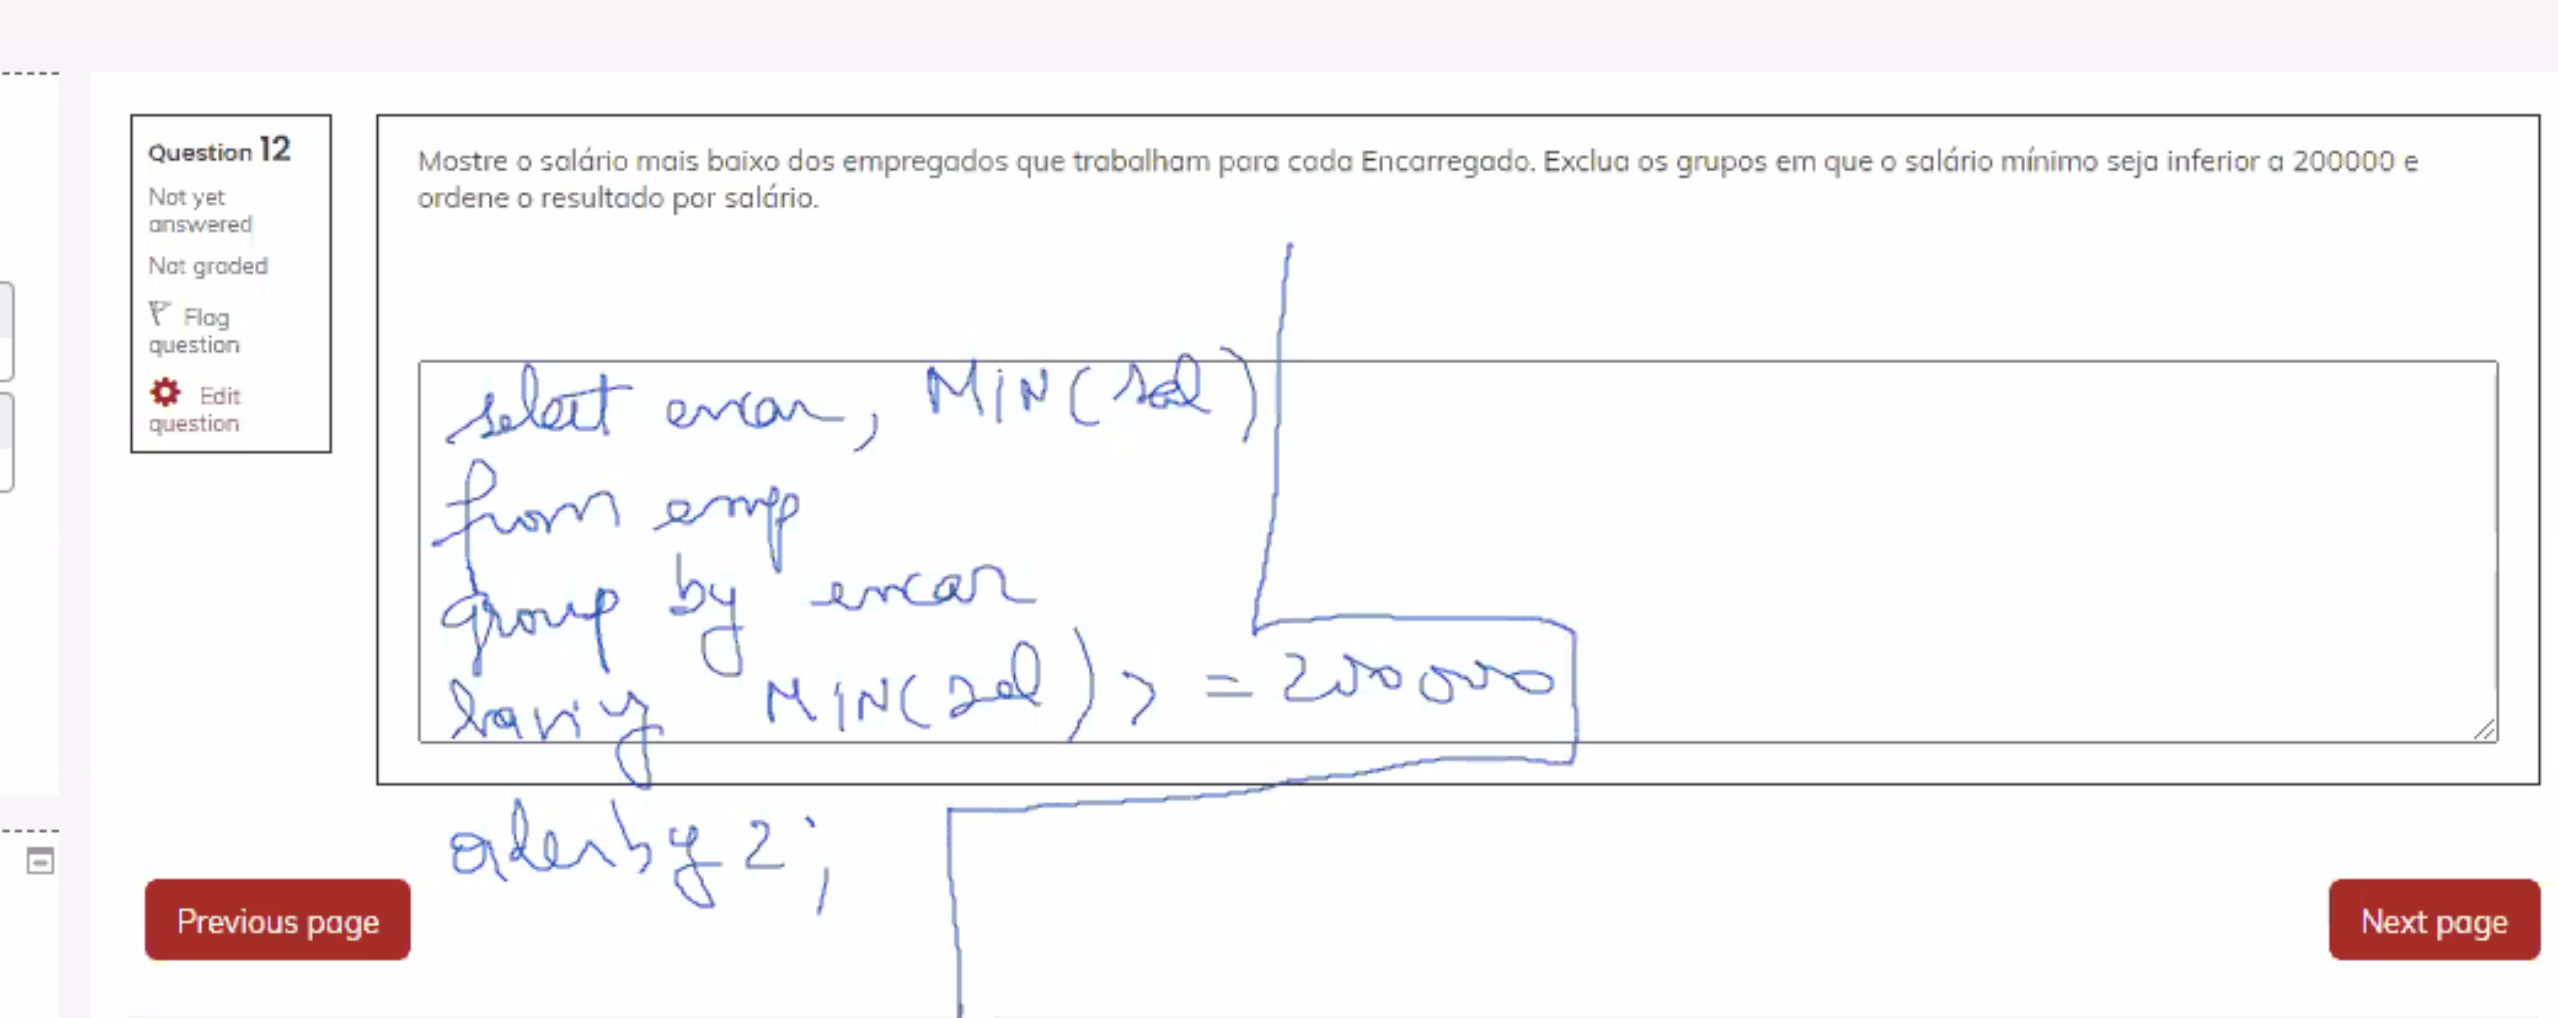 Question 12
Not yet
answered
Not graded
Flag
question
Edit
question
Mostre o salário mais baixo dos empregados que trabalham para cada Encarregado. Exclua os grupos em que o salário mínimo seja inferior a 200000 e
ordene o resultado por salário.
select encar, MIN(sal)
from emp
group by encar
having MIN(sal) >= 200000
order by 2;
Previous page
Next page